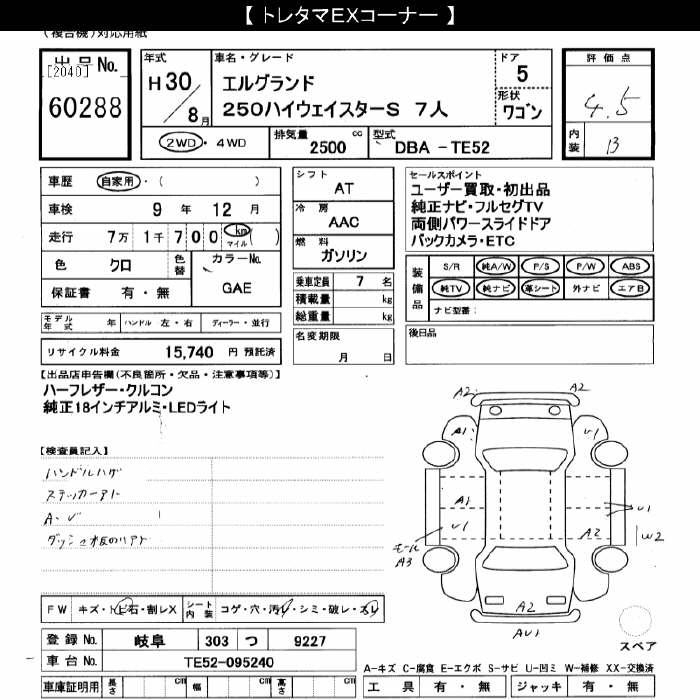 【 トレタマEXコーナー 】
(複合機)対応用紙
出品 No.
[2040]
60288
年式
H 30 / 8 月
車名・グレード
エルグランド
250ハイウェイスターS 7人
ドア
5
形状
ワゴン
2WD・4WD
排気量 cc
2500
型式
DBA - TE52
評価点
4.5
内装
B
車歴 自家用・( )
車検 9 年 12 月
走行 7万 1千 7 0 0 km マイル ( )
色 クロ 色替
カラーNo.
GAE
保証書 有・無
モデル年式 年 ハンドル 左・右 ディーラー・並行
リサイクル料金 15,740 円 預託済
シフト
AT
冷房
AAC
燃料
ガソリン
乗車定員 7 名
積載量 kg
総重量 kg
名変期限
月 日
セールスポイント
ユーザー買取・初出品
純正ナビ・フルセグTV
両側パワースライドドア
バックカメラ・ETC
装備品
S/R 純A/W P/S P/W ABS
純TV 純ナビ 革シート 外ナビ エアB
ナビ型番:
後日品
【出品店申告欄(不良箇所・欠品・注意事項等)】
ハーフレザー・クルコン
純正18インチアルミ・LEDライト
【検査員記入】
ハンドルハゲ
ステッカーアト
A・U
A2
A2
A1
U1
A1
U1
U1
A2
W2
モール
A3
A2
AU1
スペア
FW キズ・トビ石・割レX
シート内装 コゲ・穴・汚レ・シミ・破レ・スレ
登録 No. 岐阜 303 つ 9227
車台 No. TE52-095240
車庫証明用 長さ cm 幅 cm 高さ cm
A-キズ C-腐食 E-エクボ S-サビ U-凹ミ W-補修 XX-交換済
工具 有・無 ジャッキ 有・無